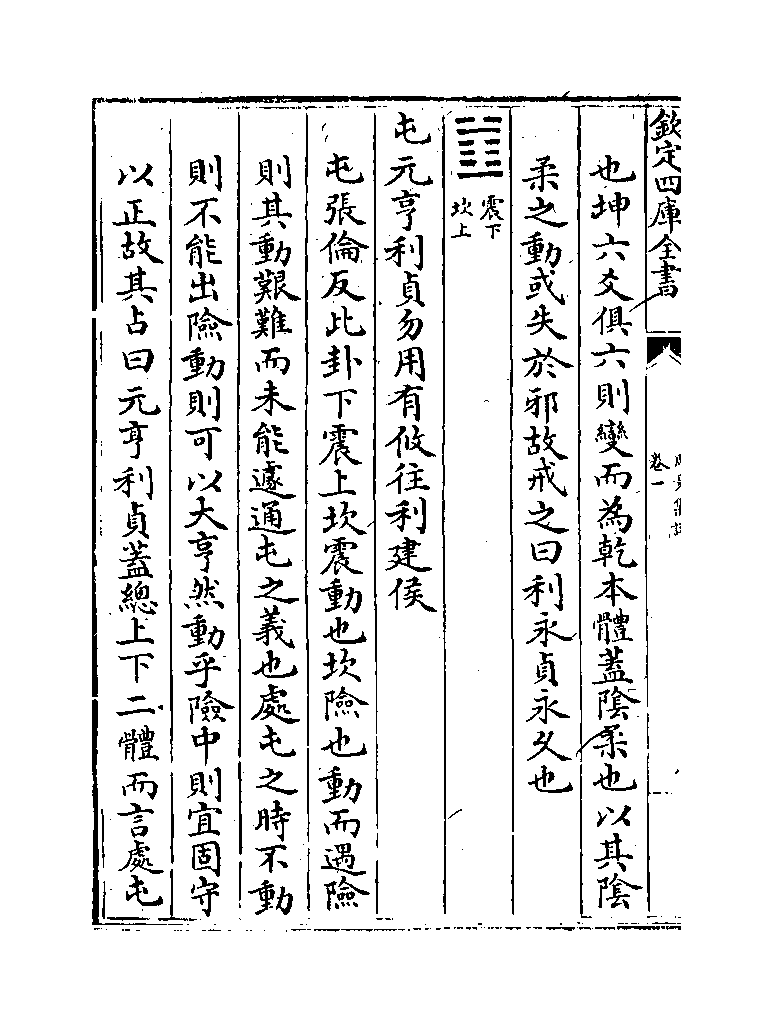 欽定四庫全書
卷一
也坤六爻俱六則變而為乾本體蓋陰柔也以其陰
柔之動或失於邪故戒之曰利永貞永久也
震下
坎上
屯元亨利貞勿用有攸往利建侯
屯張倫反此卦下震上坎震動也坎險也動而遇險
則其動艱難而未能遽通屯之義也處屯之時不動
則不能出險動則可以大亨然動乎險中則宜固守
以正故其占曰元亨利貞蓋總上下二體而言處屯